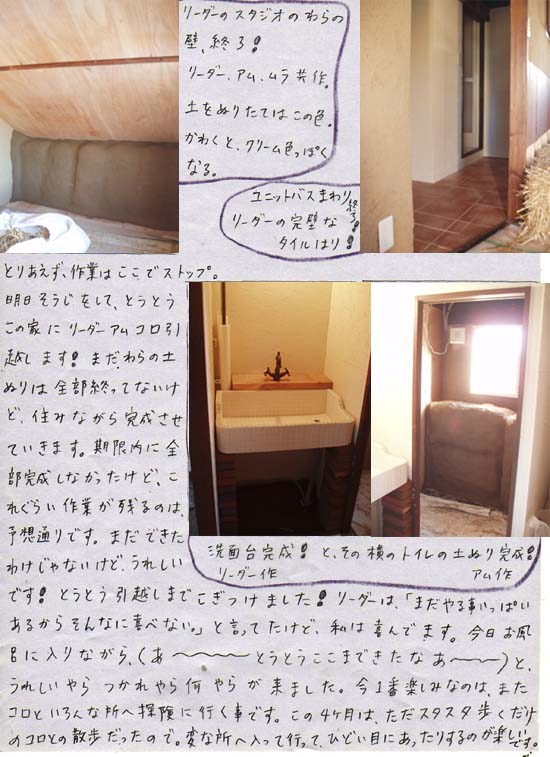 リーダーのスタジオのわらの
壁、終了!
リーダー、アム、ムラ共作。
土をぬりたてはこの色。
かわくと、クリーム色っぽく
なる。
ユニットバスまわり
終了!
リーダーの完璧な
タイルはり!
とりあえず、作業はここでストップ。
明日そうじをして、とうとう
この家にリーダーアムコロ引
越します!まだわらの土
ぬりは全部終ってないけ
ど、住みながら完成させ
ていきます。期限内に全
部完成しなかったけど、こ
れぐらい作業が残るのは、
予想通りです。まだできた
わけじゃないけど、うれしい
洗面台完成!と、その横のトイレの土ぬり完成!
リーダー作 アム作
です!とうとう引越しまでこぎつけました!リーダーは、「まだやる事いっぱい
あるからそんなに喜べない。」と言ってたけど、私は喜んでます。今日お風
呂に入りながら、(あ〜〜〜とうとうここまできたなあ〜〜)と、
うれしいやらつかれやら何やらが来ました。今1番楽しみなのは、また
コロといろんな所へ探険に行く事です。この4ケ月は、ただスタスタ歩くだけ
のコロとの散歩だったので。変な所へ入って行って、ひどい目にあったりするのが楽しいです。